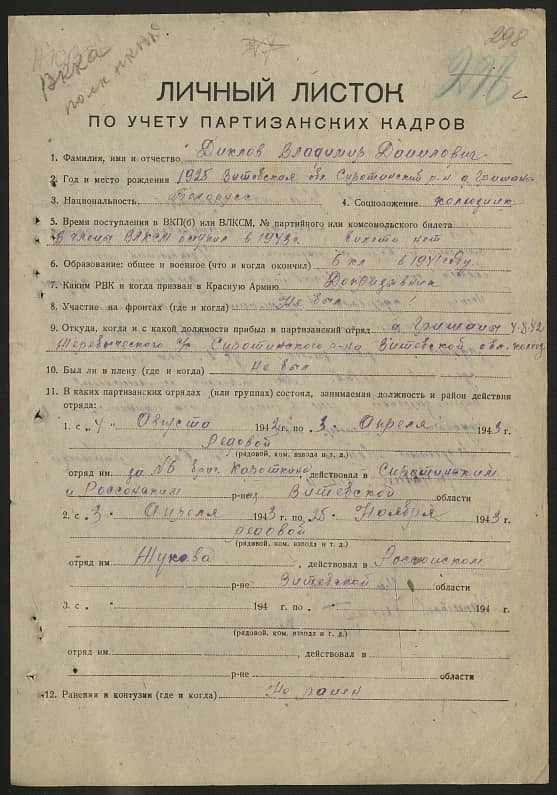 РККА
298
298
ЛИЧНЫЙ ЛИСТОК
ПО УЧЕТУ ПАРТИЗАНСКИХ КАДРОВ
1. Фамилия, имя и отчество Диклов Владимир Данилович
2. Год и место рождения 1925 Витебская обл. Сиротинский р-н д. Гришаны
3. Национальность Белорусс 4. Соцположение колхозник
5. Время поступления в ВКП(б) или ВЛКСМ, № партийного или комсомольского билета
В члены ВЛКСМ вступил в 1943г. билета нет
6. Образование: общее и военное (что и когда окончил) 5 кл в 1941 году
7. Каким РВК и когда призван в Красную Армию Допризывник
8. Участие на фронтах (где и когда) Не был
9. Откуда, когда и с какой должности прибыл в партизанский отряд д. Гришаны 4.8.42
с/с Сиротинского р-на Витебской обл. колхоз
10. Был ли в плену (где и когда) Не был
11. В каких партизанских отрядах (или группах) состоял, занимаемая должность и район действия
отряда:
1. с „4" Августа 1942 г. по 3. Апреля 1943 г.
Рядовой
(рядовой, ком. взвода и т. д.)
отряд им. за №6 бриг. Короткина, действовал в Сиротинским
и Россонским р-не Витебской области
2. с 3. Апреля 1943 г. по 25. Ноября 1943 г.
рядовой
(рядовой, ком. взвода и т. д.)
отряд им. Жукова, действовал в Россонском
р-не Витебской области
3. с " 194 г. по 194 г.
(рядовой, ком. взвода и т. д.)
отряд им. , действовал в
р-не области
12. Ранения и контузии (где и когда) Не ранен